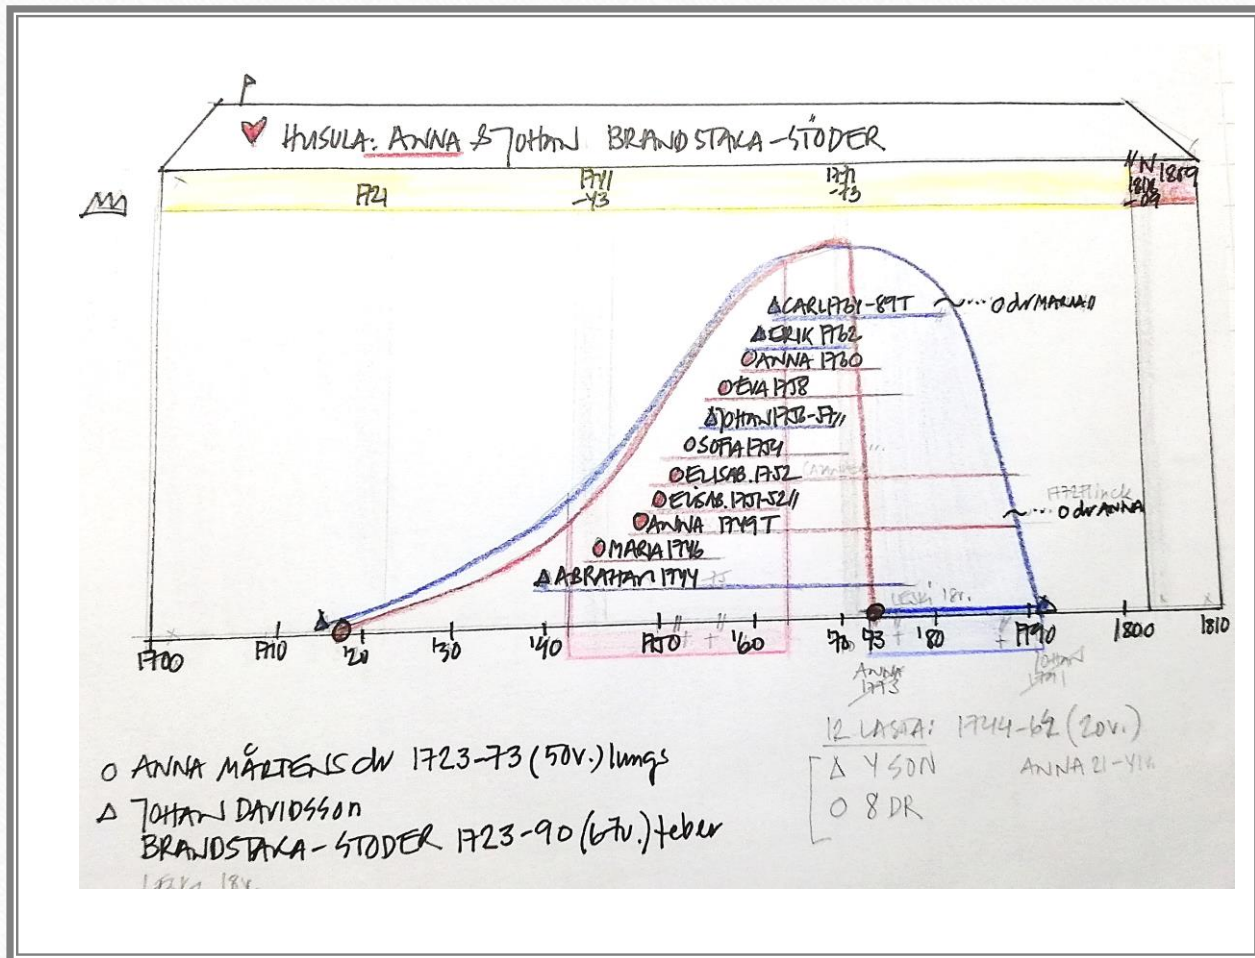 HUSULA: ANNA & JOHAN BRANDSTAKA-STÖDER
1721 1741 -43 1771 -73 1808 -09 1809
CARL 1764-89T ~... O dr MARIA //
ERIK 1762
ANNA 1760
EVA 1758
JOHAN 1756-57 //
SOFIA 1754
ELISAB. 1752
ELISAB. 1751-52 //
1772 Flinck
ANNA 1749 T ~... O dr ANNA
MARIA 1746
ABRAHAM 1744
LESKI 18v.
1700 1710 '20 '30 '40 1750 '60 '70 '73 '80 1790 1800 1810
ANNA 1773
JOHAN 1791
12 LASTA: 1744-64 (20v.)
Δ 4 SON ANNA 21-41v.
O 8 DR
O ANNA MÅRTENS dr 1723-73 (50v.) lungs
Δ JOHAN DAVIDSSON
BRANDSTAKA-STÖDER 1723-90 (67v.) feber